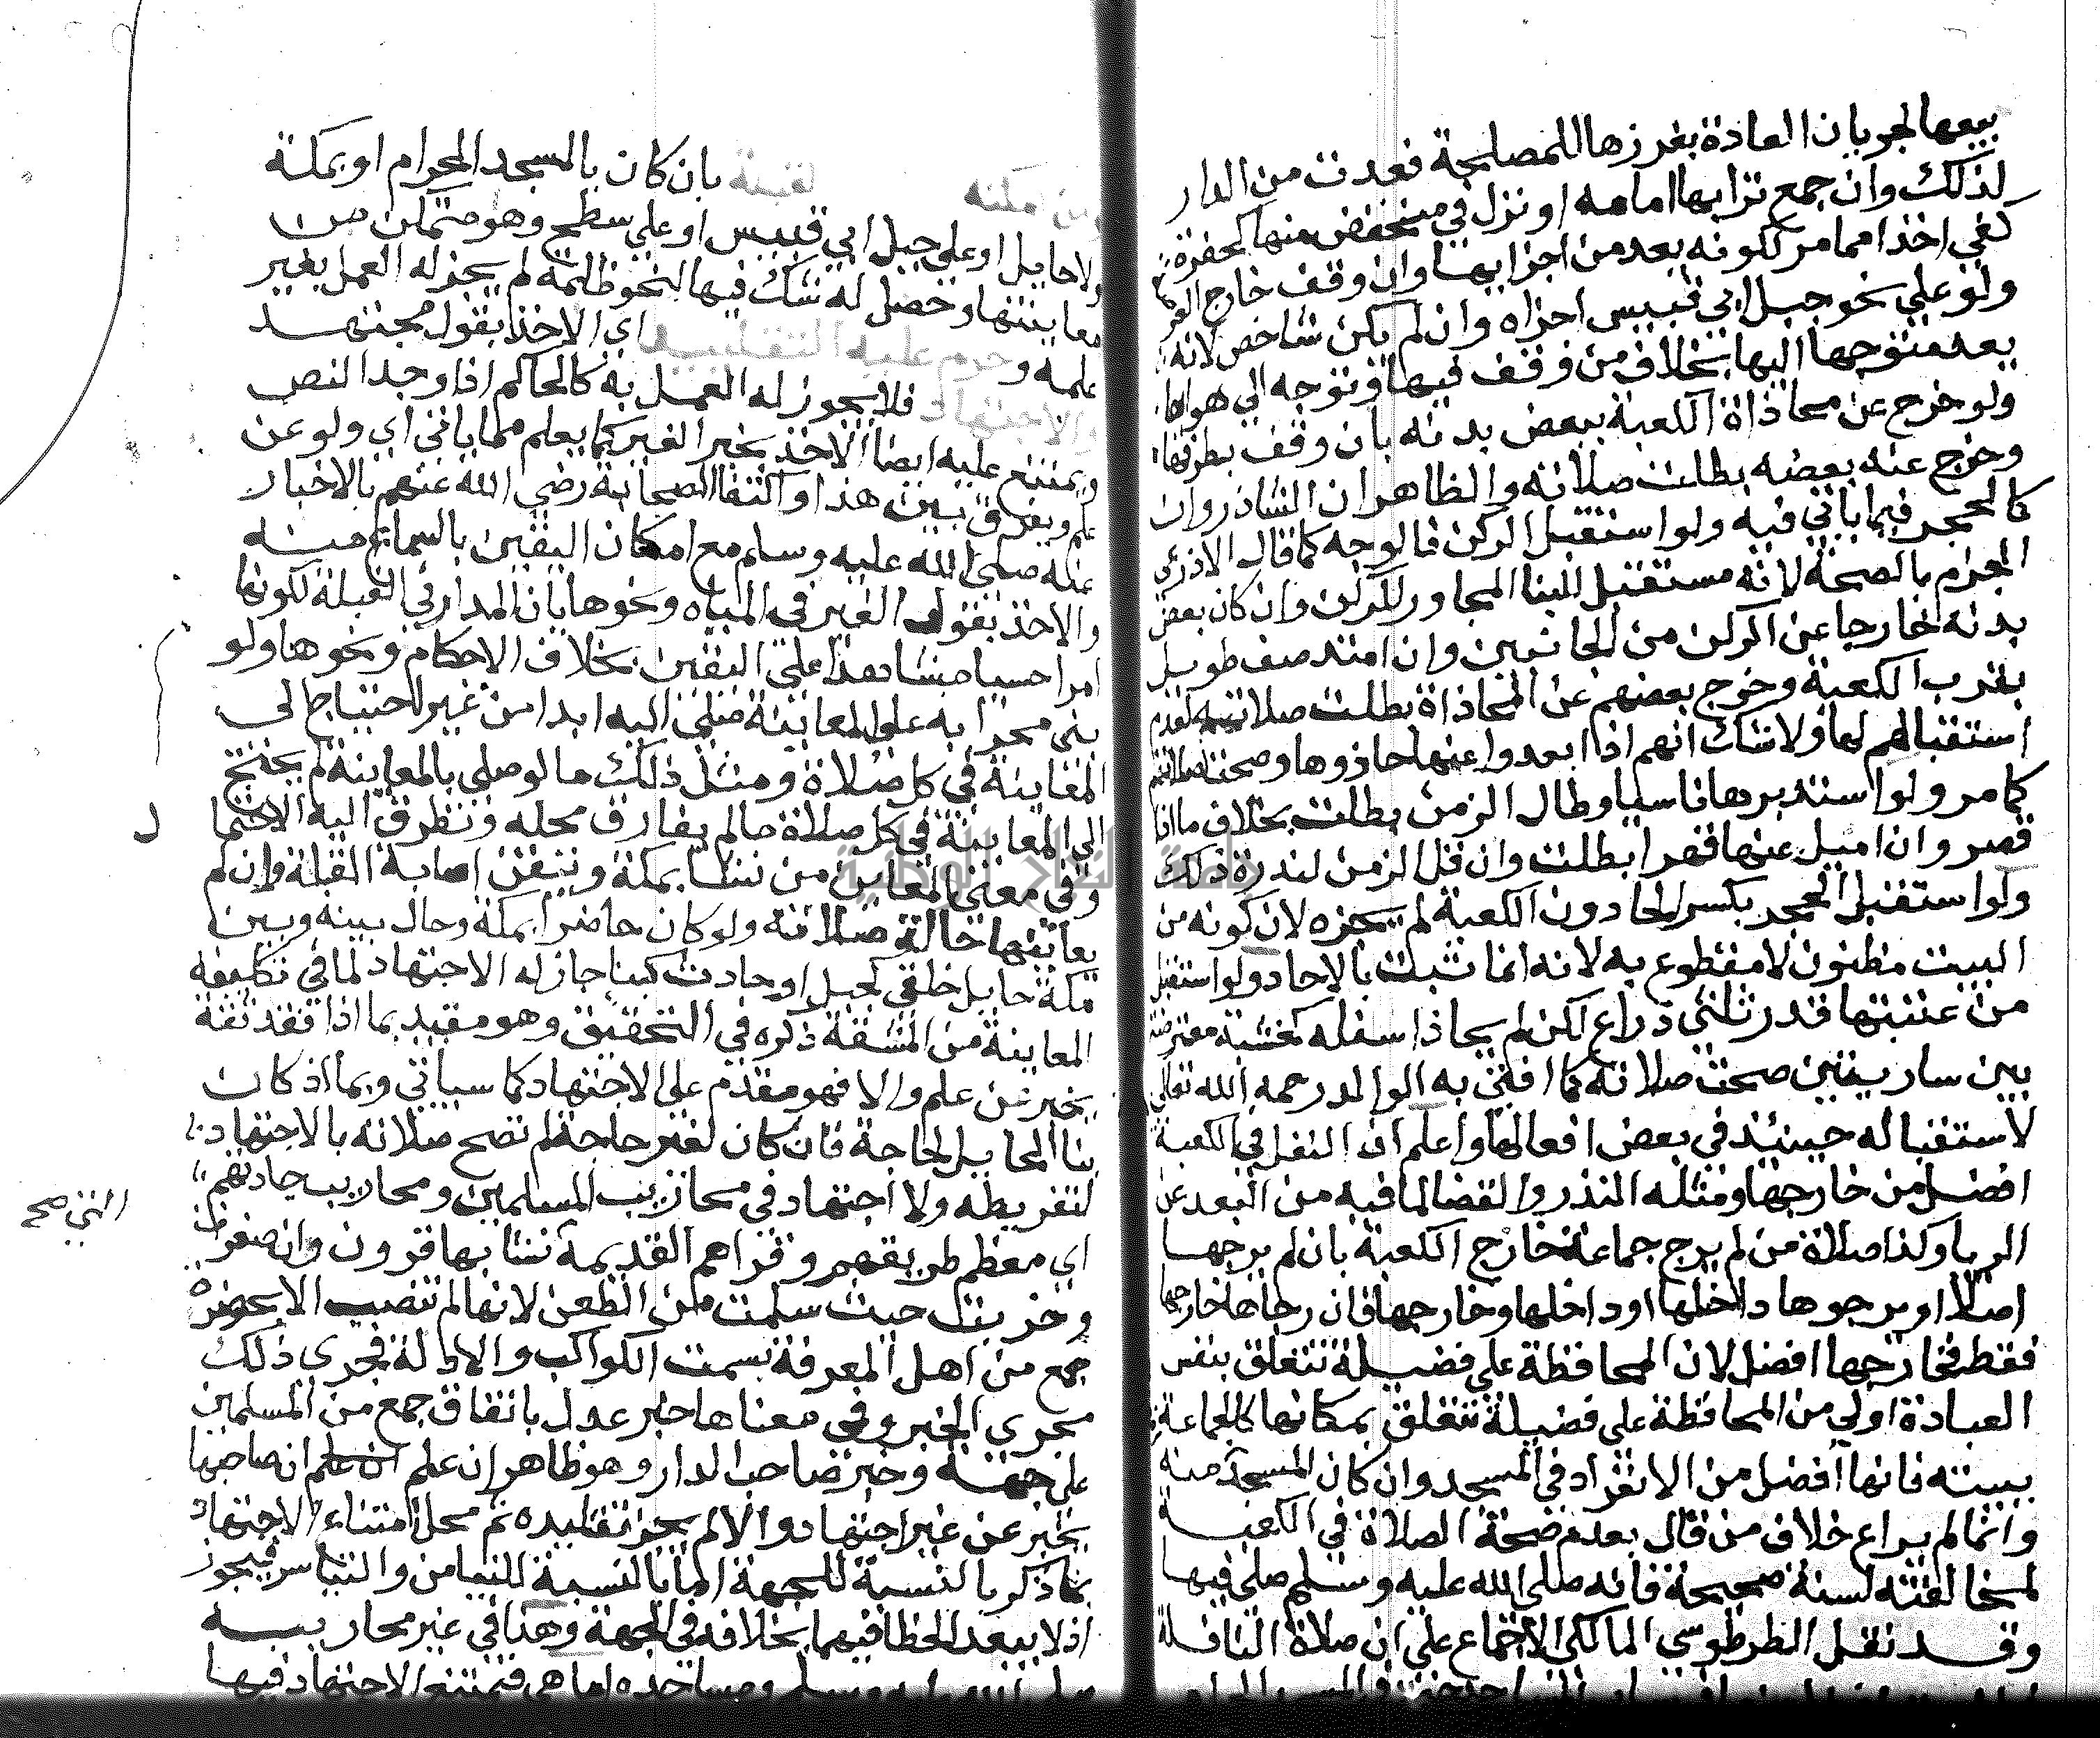 بيعها لجريان العادة بغرزها للمصلحة فعدت من الدار
لذلك وان جمع ترابها امامه او نزل في منخفض منها كحفرة
كفي اخذا مما مر لكونه يعد من اجزايها وان وقف خارج العرصة
ولو علي نحو جبل ابي قبيس اجزاه وان لم يكن شاخص لانه
يعد متوجها اليها بخلاف من وقف فيها وتوجه الي هوائها
ولو خرج عن محاذاة الكعبة ببعض بدنه بان وقف بطرفها
وخرج عنه بعضه بطلت صلاته والظاهر ان الشاذروان
كالحجر فيما ياتي فيه ولو استقبل الركن فالوجه كما قال الاذرعي
الجزم بالصحة لانه مستقبل للبنا المجاور للركن وان كان بعض
بدنه خارجا عن الركن من الجانبين وان امتد صف طويل
بقرب الكعبة وخرج بعضهم عن المحاذاة بطلت صلاته لعدم
استقبالهم لها ولا شك انهم اذا بعدوا عنها حاذوها وصحت صلاتهم
كما مر ولو استدبرها ناسيا وطال الزمن بطلت بخلاف ما اذا
قصر وان اميل عنها قهرا بطلت وان قل الزمن لندرة ذلك
ولو استقبل الحجر بكسر الحا دون الكعبة لم يجزه لان كونه من
البيت مظنون لا مقطوع به لانه انما ثبت بالاحاد ولو استقبل
من عتبتها قدر ثلثي ذراع لكن لم يحاذ اسفله كخشبة معترضة
بين ساريتين صحت صلاته كما افتي به الوالد رحمه الله تعالي
لاستقباله حينئذ في بعض افعالها واعلم ان النفل في الكعبة
افضل من خارجها ومثله النذر والقضا لما فيه من البعد عن
الريا وكذا صلاة من لم يرج جماعة خارج الكعبة بان لم يرجها
اصلا او يرجوها داخلها او داخلها وخارجها فان رجاها خارجها
فقط فخارجها افضل لان المحافظة علي فضيلة تتعلق بنفس
العبادة اولي من المحافظة علي فضيلة تتعلق بمكانها كالجماعة
ببيته فانها افضل من الانفراد في المسجد وان كان المسجد منه
وانما لم يراع خلاف من قال بعدم صحة الصلاة في الكعبة
لمخالفته لسنة صحيحة فانه صلي الله عليه وسلم صلي فيها
وقد نقل الطرطوسي المالكي الاجماع علي ان صلاة النافلة
بان كان بالمسجد الحرام او بمكة
ولا حايل او علي جبل ابي قبيس او علي سطح وهو متمكن من
معاينتها وحصل له شك فيها لنحو ظلمة لم يجز له العمل بغير
علمه و اي الاخذ بقول مجتهد
فلا يجوز له العمل به كالحاكم اذا وجد النص
ويمتنع عليه ايضا الاخذ بخبر الغير كما يعلم مما ياتي اي ولو عن
علم ويفرق بين هذا واكتفا الصحابة رضي الله عنهم بالاخبار
عنه صلي الله عليه وسلم مع امكان اليقين بالسماع منه
والاخذ بقول الغير في المياه ونحوها بان المدار في القبلة لكونها
امرا حسيا مشاهدا علي اليقين بخلاف الاحكام ونحوها ولو
بني محرابه علي المعاينة صلي اليه ابدا من غير احتياج الي
المعاينة في كل صلاة ومثل ذلك ما لو صلي بالمعاينة لم يحتج
الي المعاينة في كل صلاة ما لم يفارق محله وتطرق اليه الاحتما
ل
وفي معني المعاين من نشا بمكة وتيقن اصابة القبلة وان لم
يعاينها حالة صلاته ولو كان حاضرا بمكة وحال بينه وبين
مكة حايل خلقي كجبل او حادث كبنا جاز له الاجتهاد لما في تكليفه
المعاينة من المشقة ذكره في التحقيق وهو مقيد بما اذا فقد ثقة
يخبر عن علم والا فهو مقدم علي الاجتهاد كما سياتي وبما اذ كان
بنا الحايل لحاجة فان كان لغير حاجة لم تصح صلاته بالاجتهاد
لتفريطه ولا اجتهاد في محاريب المسلمين ومحاريب جادتهم
اي معظم طريقهم وقراهم القديمة نشا بها قرون وان صغرت
التي صح
وخربت حيث سلمت من الطعن لانها لم تنصب الا بحضرة
جمع من اهل المعرفة بسمت الكواكب والادلة فجري ذلك
مجري الخبر وفي معناها خبر عدل باتفاق جمع من المسلمين
علي جهة وخبر صاحب الدار وهو ظاهر ان علم ان صاحبها
يخبر عن غير اجتهاد والا لم يجز تقليده ثم محل امتناع الاجتهاد
بما ذكر بالنسبة للجهة اما بالنسبة للتيامن والتياسر فيجوز
اذ لا يبعد الخطا فيهما بخلافه في الجهة وهذا في غير محاريبه
صلي الله عليه وسلم ومساجده اما هي فيمتنع الاجتهاد فيها